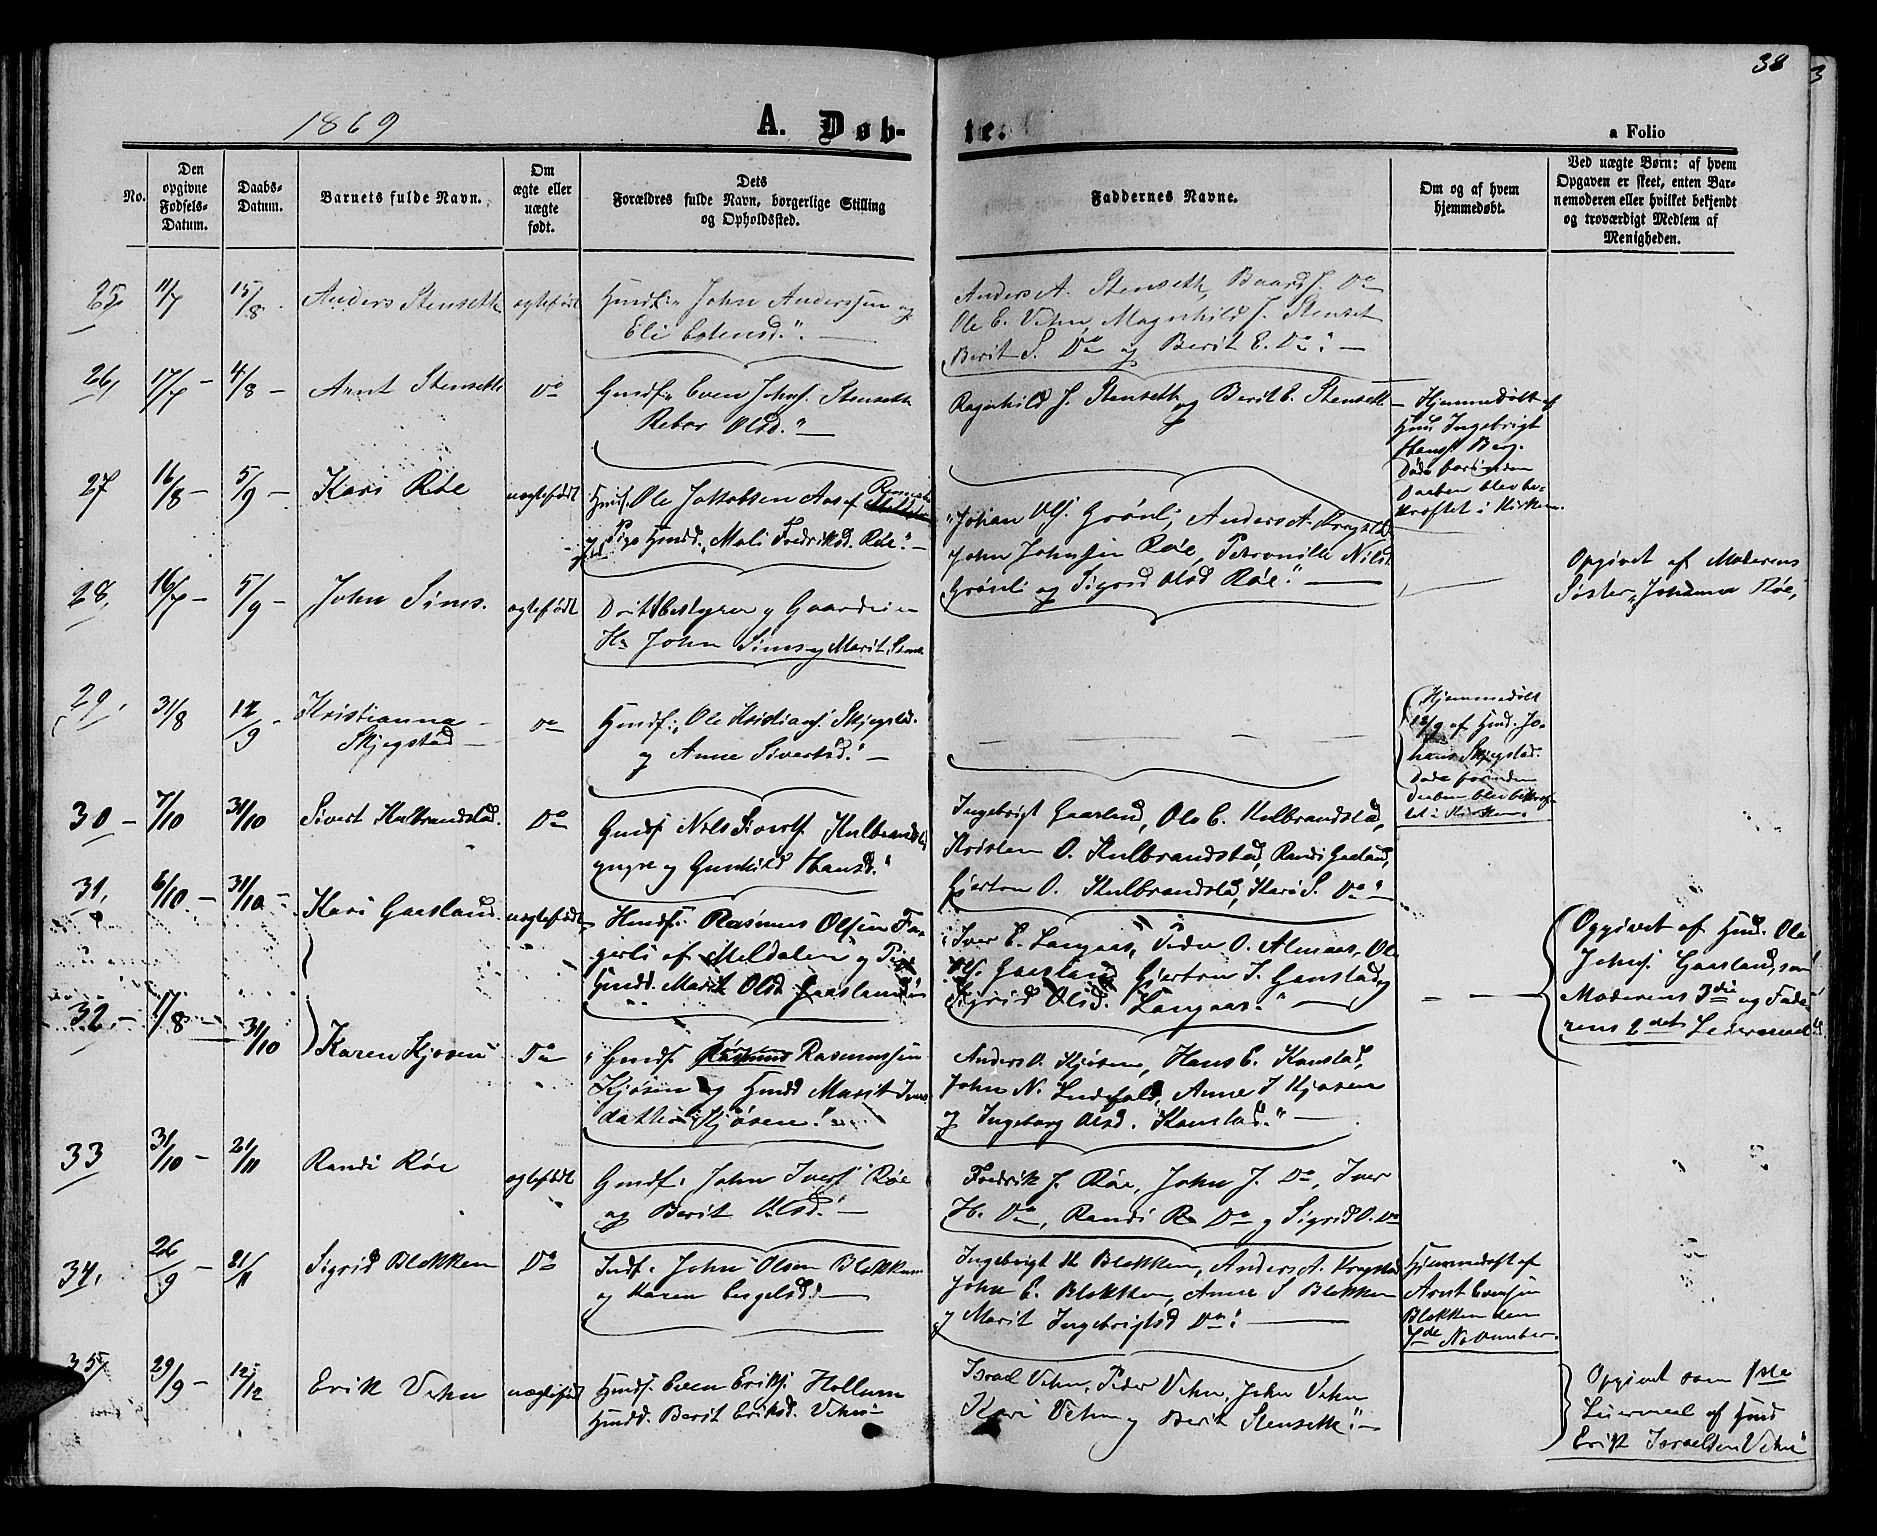 38
3
1869
A. Døb-
te.
a Folio
No.
Den opgivne Fødsels-Datum.
Daabs-Datum.
Barnets fulde Navn.
Om ægte eller uægte født.
Dets Forældres fulde Navn, borgerlige Stilling og Opholdssted.
Faddernes Navne.
Om og af hvem hjemmedøbt.
Ved uægte Børn: af hvem Opgaven er skeet, enten Barnemoderen eller hvilket bekjendt og troværdigt Medlem af Menigheden.
25 11/7 15/8 Anders Stenseth ægtefødt Gmdf. John Anderssen og
Eli Estensd.
Anders A. Stenseth, Baard J. Do
Ole E. Vehn, Magnhild J. Stenset
Berit S. Do og Berit E. Do
26, 17/7 – 4/8 – Arnt Stenseth Do Gmdf. Even Johns. Stenseth
Olsd.
Ragnhild J. Stenseth og Berit E. Stenseth
Hjemmedøbt af
Gmd Ingebrigt
Hans. Berg.
Døde forinden
Daaben blev be-
kræftet i Kirken.
27 16/8 – 5/9 – Kari Røe uægtefødt Gmdf. Ole Jakobsen Aas af
og Pige Gmdd. Mali Fredriksd. Røe.
Johan Ols. Grønli, Anders A. Krogstad
John Johnsen Røe, Petronille Nilsd
Grønli og Sigrid Olsd Røe.
Opgivet af Moderens
Søster, Johanna Røe,
28, 16/7 – 5/9 – John Sims. ægtefødt Driftsbestyrer og Gaardeier
Hr John Sims og Marit Sims
29, 31/8 12/9 Kristianna
Skjegstad
Do Gmdf. Ole Kristians. Skjegstad
og Anne Sivertsd.
Hjemmedøbt
12/9 af Gmd. Jo-
hans Skjegstad.
Døde forinden
Daaben blev bekræf-
tet i Kirken.
30 – 7/10 31/10 Sivert Kulbrandstad. Do Gmdf. Nils Siverts. Kulbrandstad
yngre og Gunhild Hansd.
Ingebrigt Gaasland, Ole E. Kulbrandstad,
Kristen O. Kulbrandstad, Randi Gaasland,
Gjertru O. Kulbrandstad, Kari S. Do
31. 6/10 – 31/10 – Kari Gaasland uægtefødt Gmdf. Rasmus Olsen Fa-
gerli af Meldalen og Pige
Gmdd. Marit Olsd. Gaasland
Iver E. Langaas, Peder O. Almaas, Ole
Ols. Gaasland, Gjertru I. Ganstad og
Sigrid Olsd. Langaas.
Opgivet af Gmd. Ole
Johns. Gaasland, som
Moderens 3die og Fade-
rens 2det Leiermaal.
32. – 1/8 – 31/10 Karen Kjøsen Do Gmdf. Rasmussen
Kjøsen og Gmdd Marit Jens
datter Kjøsen.
Anders O. Kjøsen, Hans E. Kanstad,
John N. Lundfald, Anne I Kjøsen
og Ingeborg Olsd. Kanstad.
33 31/10 – 21/11 Randi Røe ægtefødt Gmdf. John Ivers. Røe
og Berit Olsd.
Fredrik J. Røe, John J. Do, Iver
H. Do, Randi R Do og Sigrid O. Do
34. 26/9 – 21/11 Sigrid Blokken Do Indf. John Olsen Blokkum
og Karen Engelsd.
Ingebrigt H Blokken, Anders A. Krogstad
John E. Blokken, Anne S Blokken
og Marit Ingebrigtsd Do.
Hjemmedøbt af
Arnt Evensen
Blokken den
7de November.
35, 29/9 – 12/12 Erik Vehn uægtefødt Gmdf. Even Eriks. Hollum
Gmdd. Berit Eriksd. Vehn
Israel Vehn, Peder Vehn, John Vehn
Kari Vehn og Berit Stenseth.
Opgivet som 1ste
Leiermaal af Gmd
Erik Israelsen Vehn